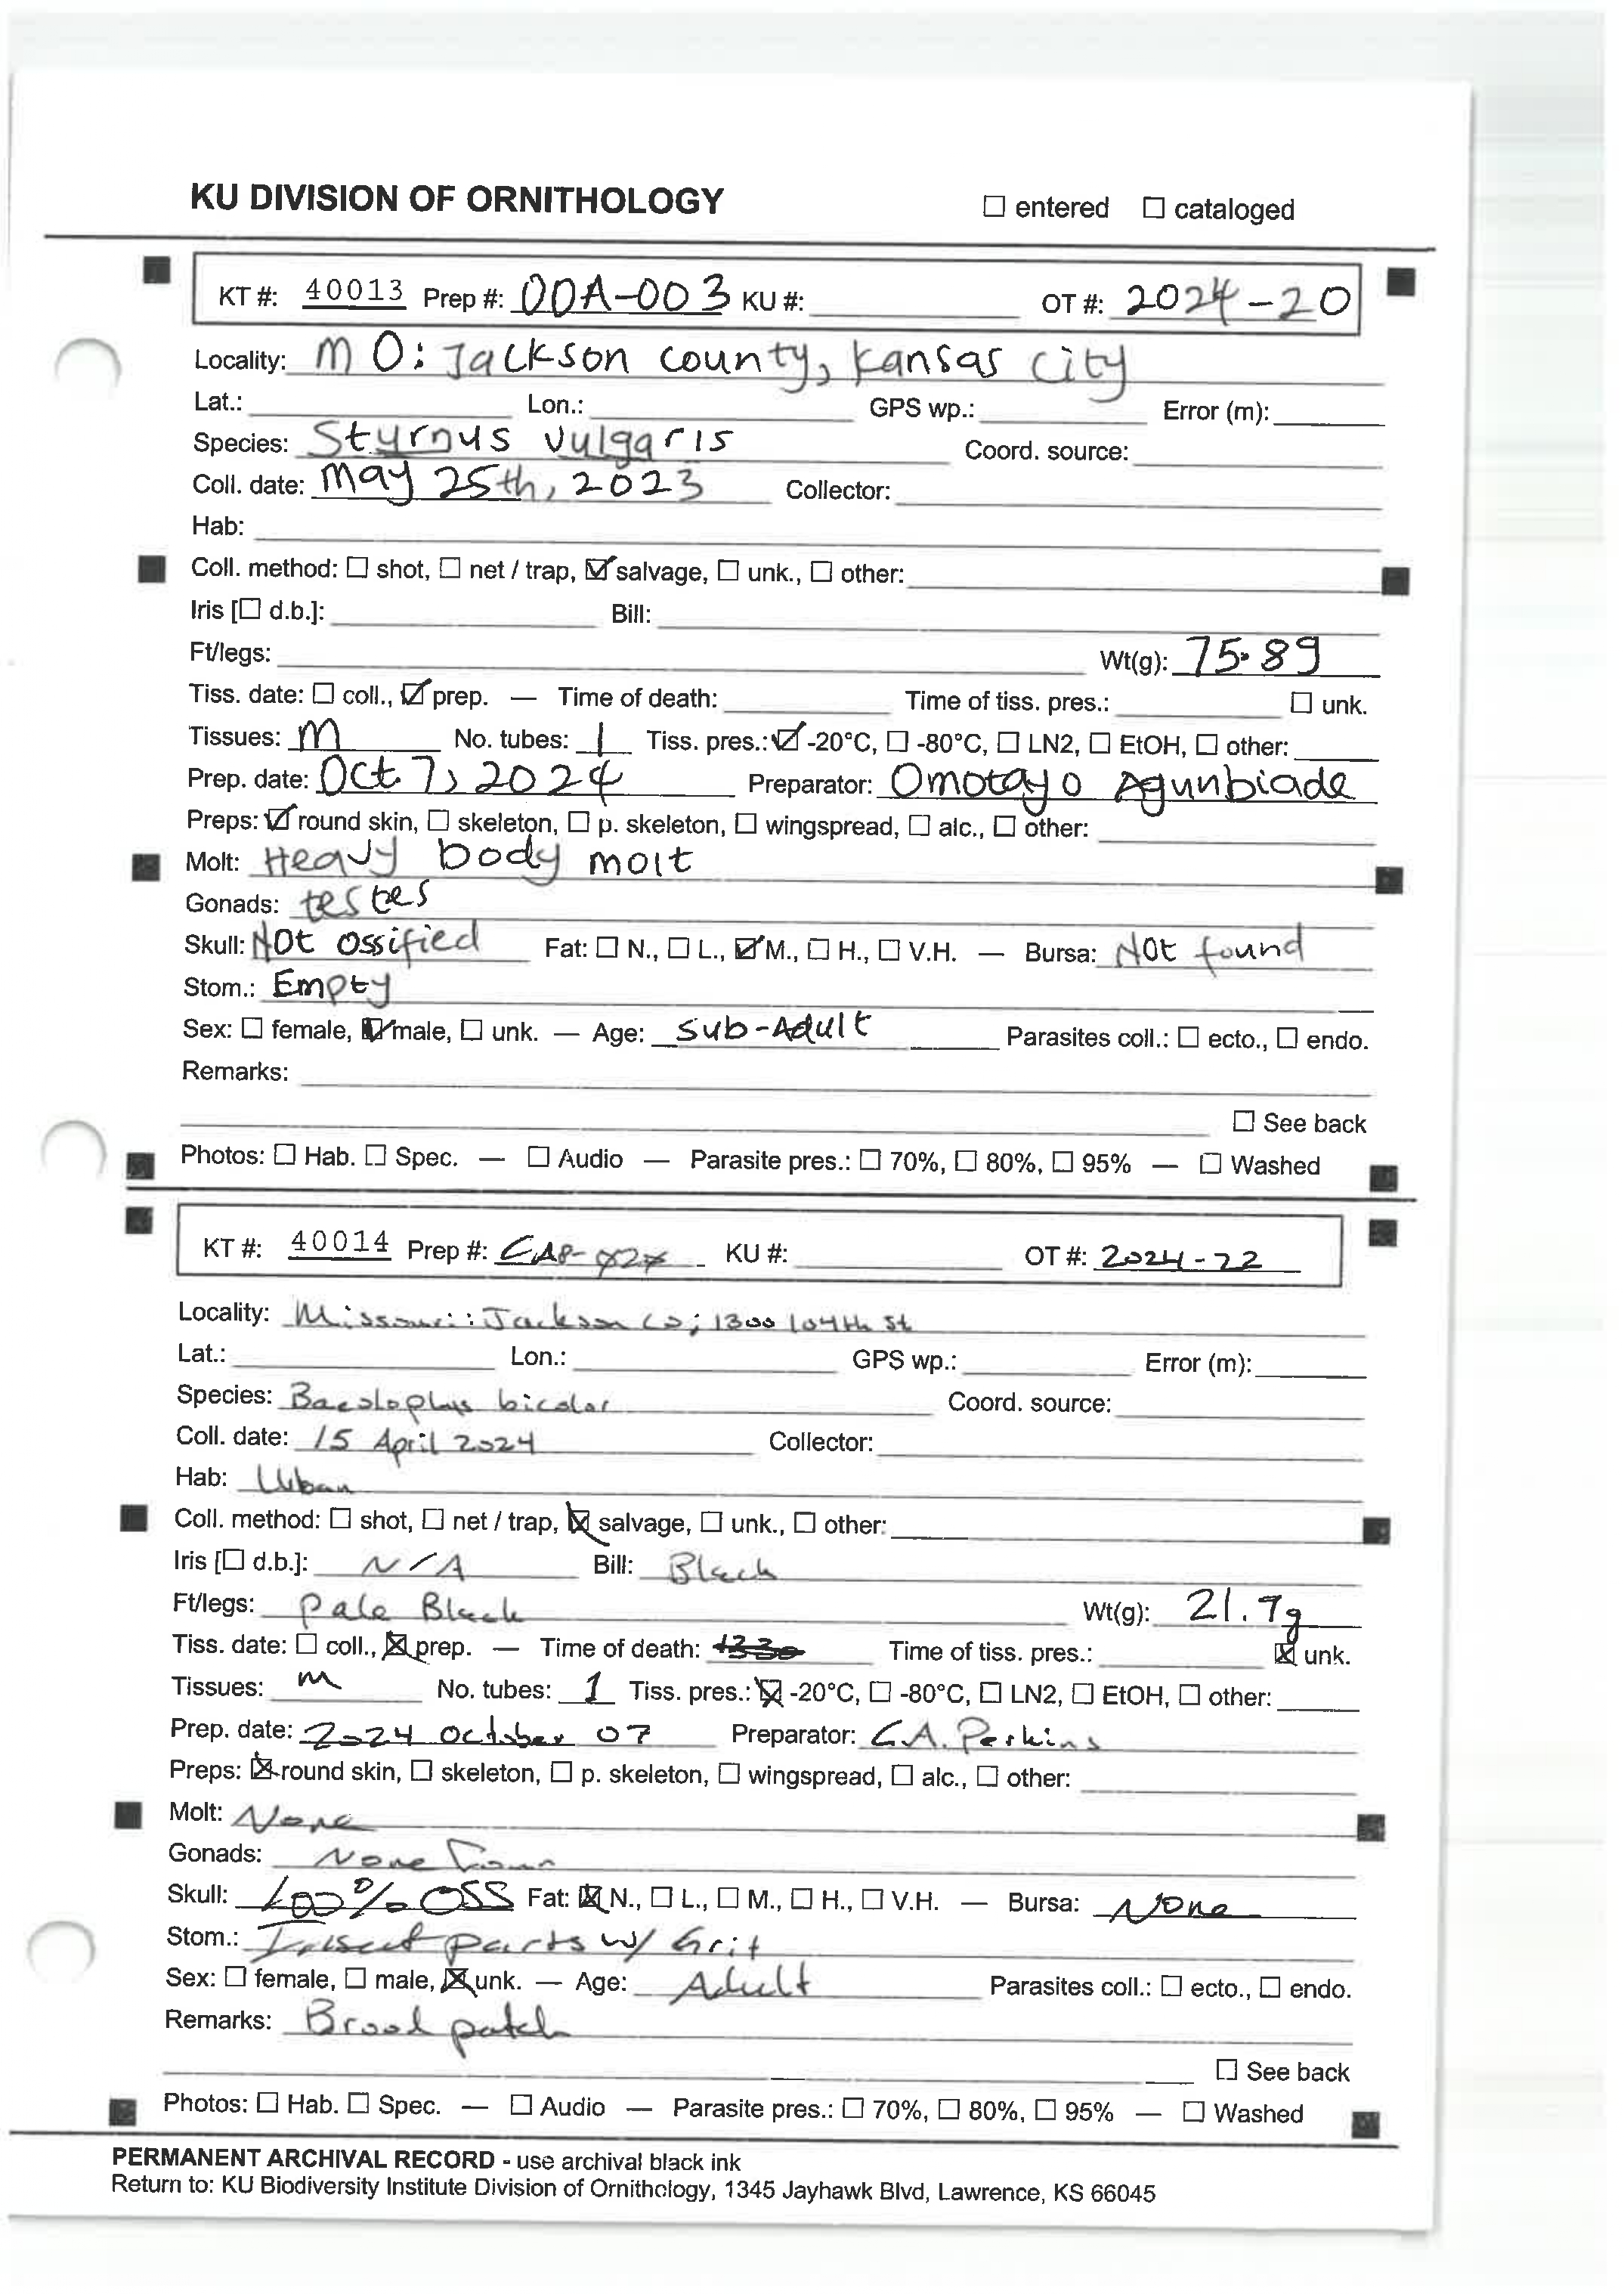 KU DIVISION OF ORNITHOLOGY ☐ entered ☐ cataloged
KT #: 40013 Prep #: OOA-003 KU #: OT #: 2024-20
Locality: MO: Jackson county, Kansas city
Lat.: Lon.: GPS wp.: Error (m):
Species: Sturnus vulgaris Coord. source:
Coll. date: May 25th, 2023 Collector:
Hab:
Coll. method: ☐ shot, ☐ net / trap, ☑ salvage, ☐ unk., ☐ other:
Iris [☐ d.b.]: Bill:
Ft/legs: Wt(g): 75.89
Tiss. date: ☐ coll., ☑ prep. — Time of death: Time of tiss. pres.: ☐ unk.
Tissues: M No. tubes: 1 Tiss. pres.: ☑ -20°C, ☐ -80°C, ☐ LN2, ☐ EtOH, ☐ other:
Prep. date: Oct 7, 2024 Preparator: Omotayo Agunbiade
Preps: ☑ round skin, ☐ skeleton, ☐ p. skeleton, ☐ wingspread, ☐ alc., ☐ other:
Molt: Heavy body molt
Gonads: testes
Skull: Not ossified Fat: ☐ N., ☐ L., ☑ M., ☐ H., ☐ V.H. — Bursa: Not found
Stom.: Empty
Sex: ☐ female, ☑ male, ☐ unk. — Age: Sub-Adult Parasites coll.: ☐ ecto., ☐ endo.
Remarks:
☐ See back
Photos: ☐ Hab. ☐ Spec. — ☐ Audio — Parasite pres.: ☐ 70%, ☐ 80%, ☐ 95% — ☐ Washed
KT #: 40014 Prep #: KU #: OT #: 2024-22
Locality: Missouri: Jackson Co; 1300 104th St
Lat.: Lon.: GPS wp.: Error (m):
Species: Baeolophus bicolor Coord. source:
Coll. date: 15 April 2024 Collector:
Hab: Urban
Coll. method: ☐ shot, ☐ net / trap, ☒ salvage, ☐ unk., ☐ other:
Iris [☐ d.b.]: N/A Bill: Black
Ft/legs: Pale Black Wt(g): 21.9g
Tiss. date: ☐ coll., ☒ prep. — Time of death: Time of tiss. pres.: ☒ unk.
Tissues: m No. tubes: 1 Tiss. pres.: ☒ -20°C, ☐ -80°C, ☐ LN2, ☐ EtOH, ☐ other:
Prep. date: 2024 October 07 Preparator: C.A. Perkins
Preps: ☒ round skin, ☐ skeleton, ☐ p. skeleton, ☐ wingspread, ☐ alc., ☐ other:
Molt: None
Gonads: None
Skull: 100% OSS Fat: ☒ N., ☐ L., ☐ M., ☐ H., ☐ V.H. — Bursa: None
Stom.: Insect parts w/ Grit
Sex: ☐ female, ☐ male, ☒ unk. — Age: Adult Parasites coll.: ☐ ecto., ☐ endo.
Remarks: Brood patch
☐ See back
Photos: ☐ Hab. ☐ Spec. — ☐ Audio — Parasite pres.: ☐ 70%, ☐ 80%, ☐ 95% — ☐ Washed
PERMANENT ARCHIVAL RECORD - use archival black ink
Return to: KU Biodiversity Institute Division of Ornithology, 1345 Jayhawk Blvd, Lawrence, KS 66045